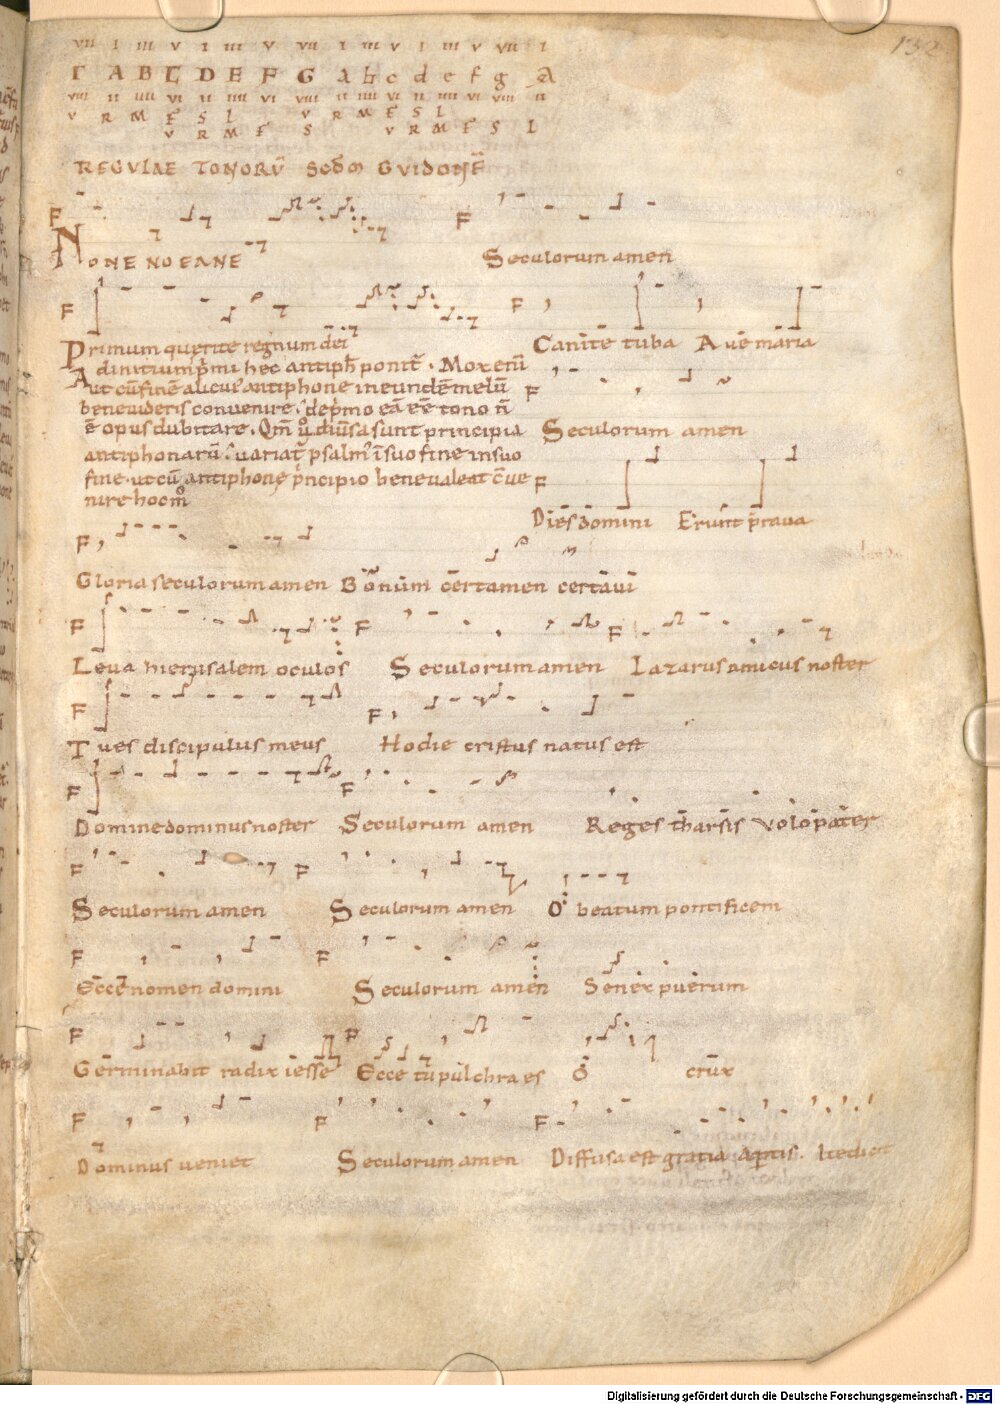 VII I IIII V I IIII V VII I IIII V I IIII V VII I
Γ A B C D E F G a b c d e f g a
VIII II IIII VI II IIII VI VIII II IIII VI II IIII VI VIII II
V R M F S L V R M F S L
V R M F S V R M F S L
132
REGVLAE TONORŪ SCDM GVIDONĒ
F F
NONE NOEANE Seculorum amen
F F
Primum querite regnum dei Canite tuba Aue maria
Ad initium p̄mi hec antiph̄ ponit̄. Mox enī
ut cū fine alicui' antiphone in eundē melū F
beneuideris conuenire, dep̄mo eā eē tono n̄
ē opus dubitare. Qm̄ u̾ diu̾sa sunt principia Seculorum amen
antiphonarū, uariat̄ psalm' ī suo fine in suo
fine. ut cū antiphone p̄ncipio bene ualeat c̄ue F
nire hoc m̊
Dies domini Erunt praua
F
Gloria seculorum amen Bonum certamen certaui
F F F
Leua hierusalem oculos Seculorum amen Lazarus amicus noster
F F
Tu es discipulus meus Hodie cristus natus est
F F
Domine dominus noster Seculorum amen Reges tharsis volo pater
F F
Seculorum amen Seculorum amen O beatum pontificem
F F
Ecce nomen domini Seculorum amen Senex puerum
F F
Germinabit radix iesse Ecce tu pulchra es O crux
F F F
Dominus ueniet Seculorum amen Diffusa est gratia
Digitalisierung gefördert durch die Deutsche Forschungsgemeinschaft - DFG